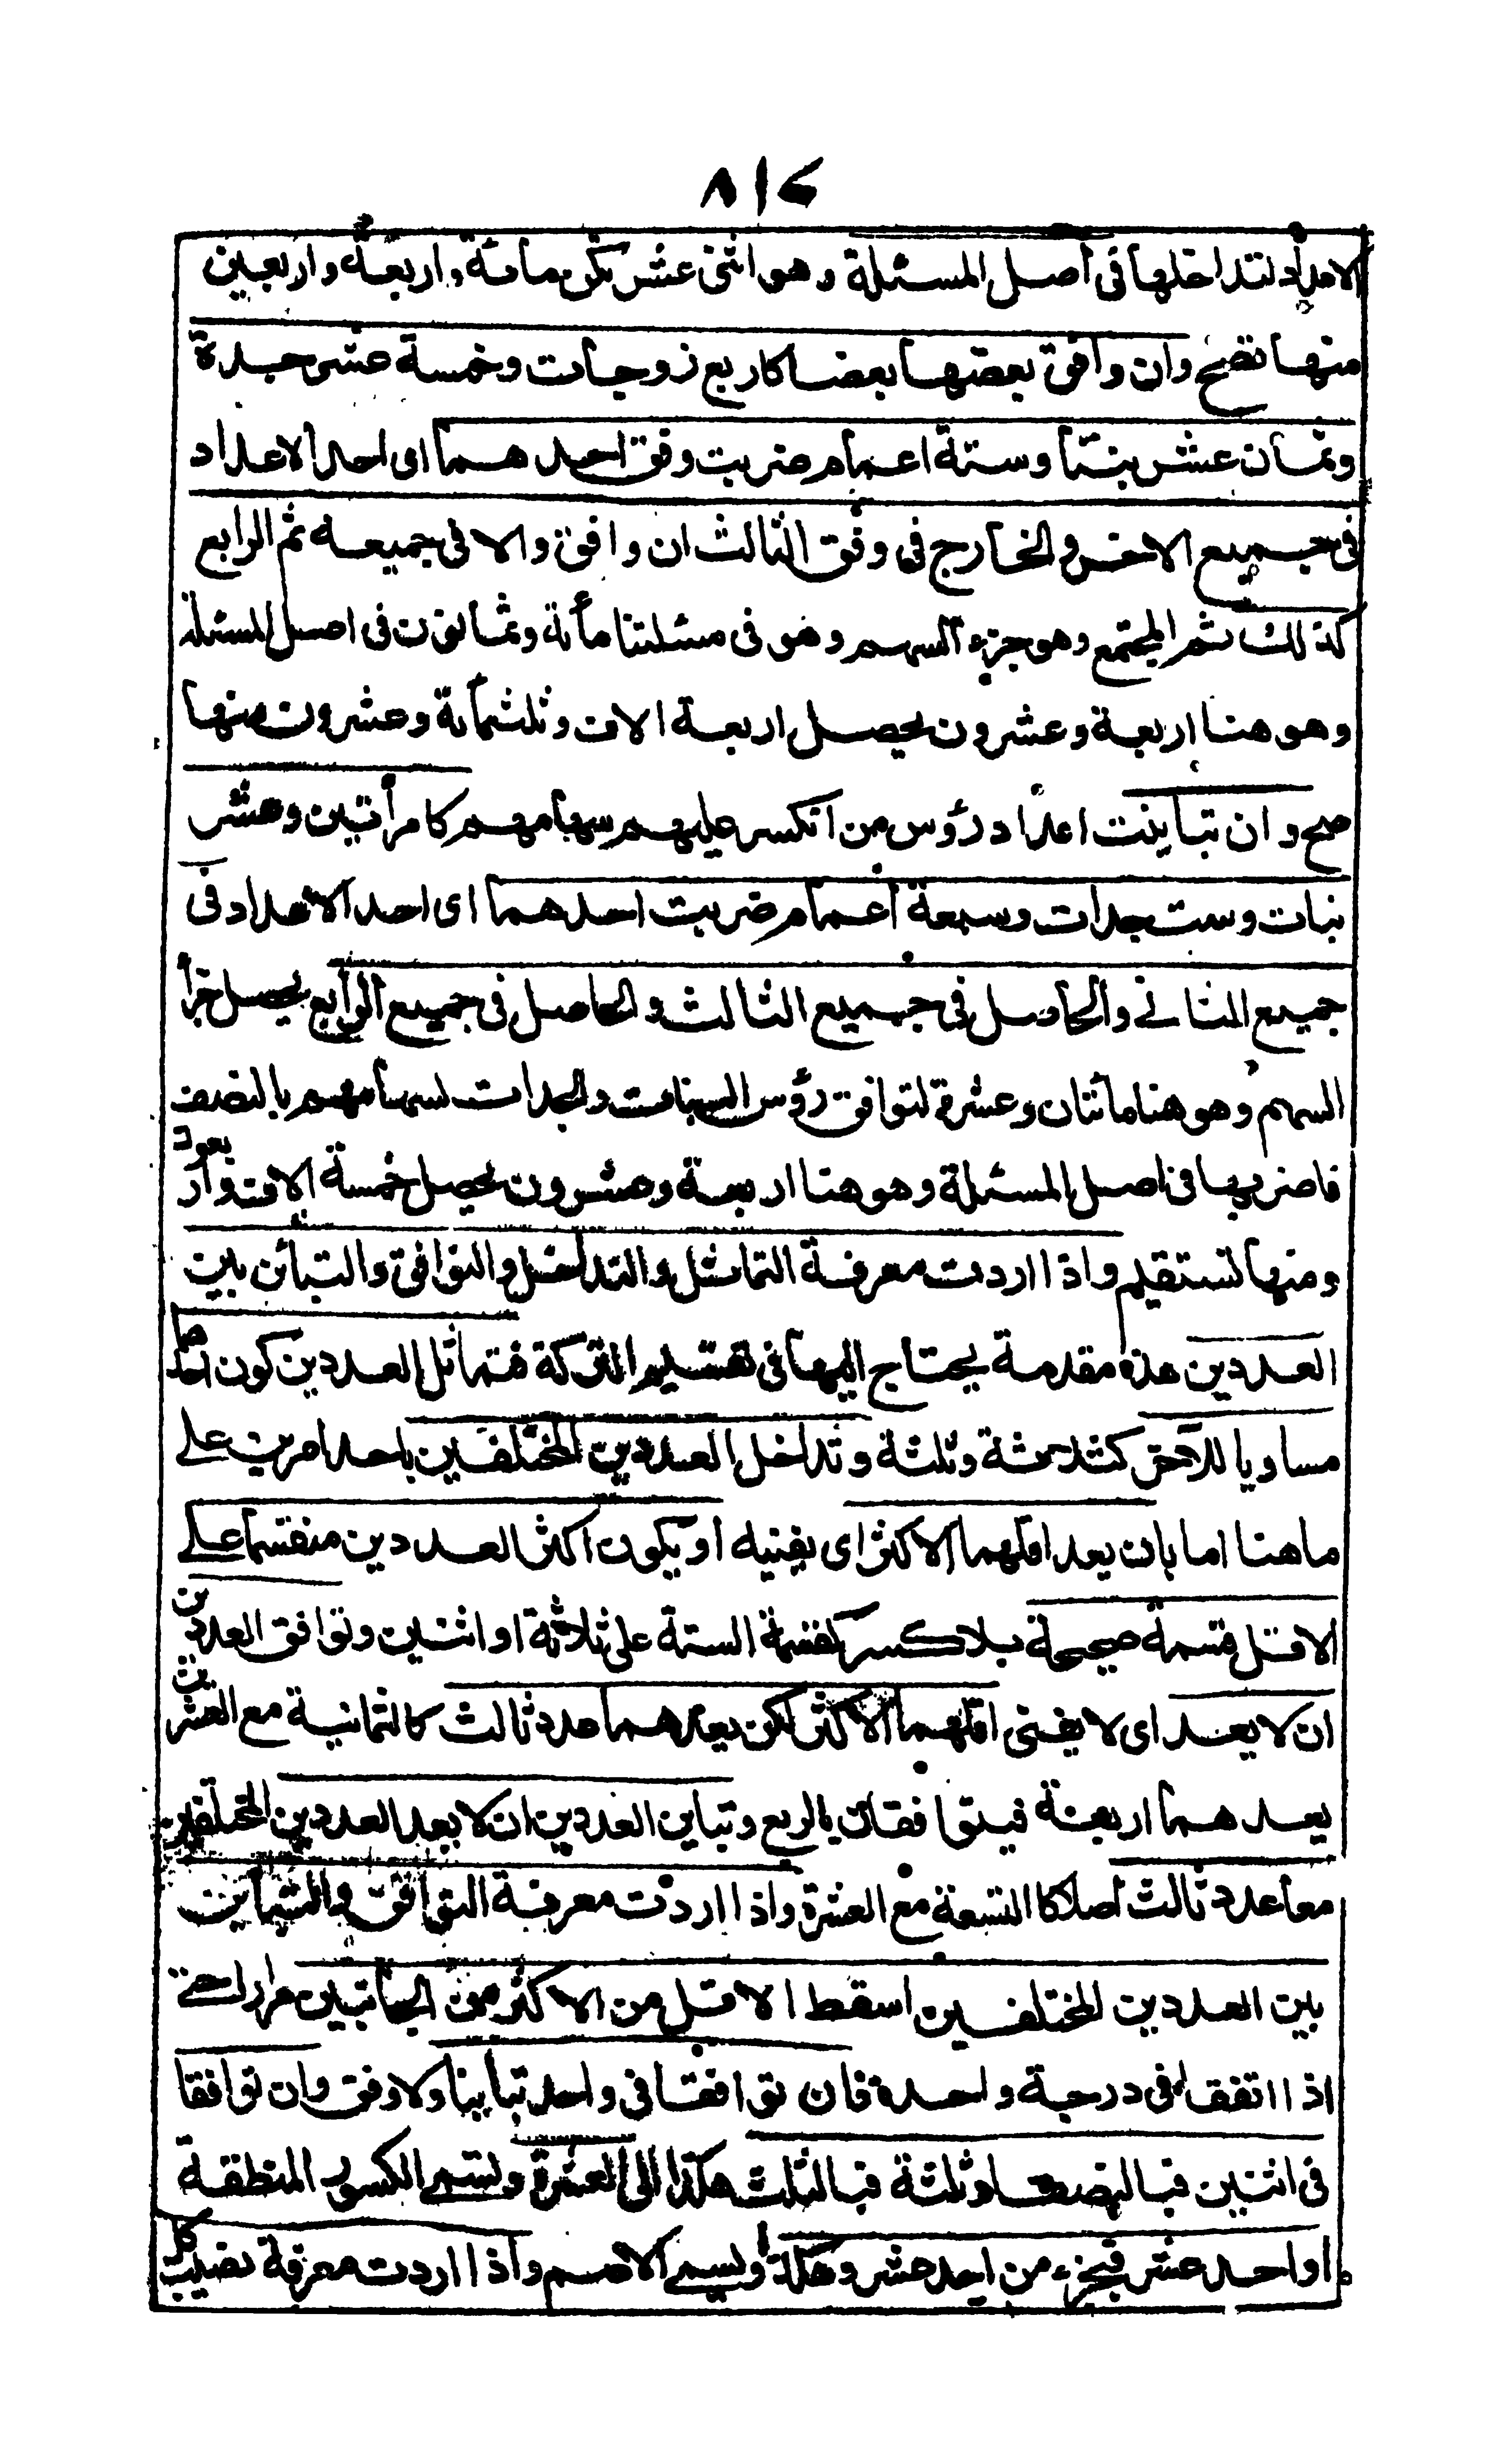 ٨١٧
الاعداد لتداخلها فى أصل المسئلة وهو اثنى عشر تكن مائة واربعة واربعين
منها تصح وان وافق بعضها بعضا كاربع زوجات وخمسة عشر جدة
وثمان عشر بنتا وستة اعمام ضربت وفق احدهما اى احد الاعداد
فى جميع الاخر والخارج فى وفق الثالث ان وافق والا فى جميعه ثم الرابع
كذلك ثم المجتمع وهو جزء السهم وهو فى مسئلتنا مأئة وثمانون فى اصل المسئلة
وهو هنا اربعة وعشرون يحصل اربعة الاف وثلثمائة وعشرون منها
صح وان تباينت اعداد رؤس من انكسر عليهم سهامهم كامرأتين وعشر
بنات وست جدات وسبعة أعمام ضربت احدهما اى احد الاعداد فى
جميع الثانے والحاصل فى جميع الثالث والحاصل فى جميع الرابع يحصل جزأ
السهم وهو هنا مائتان وعشرة لتوافق رؤس البنات والجدات لسهامهم بالنصف
فاضربها فى اصل المسئلة وهو هنا اربعة وعشرون يحصل خمسة الاف واربعون
ومنها تستقيم واذا اردت معرفة التماثل والتداخل والتوافق والتبائن بين
العددين هذه مقدمة يحتاج اليها فى تقسيم التركة فتماثل العددين كون احدهما
مساويا للآخر كثلاثة وثلثة وتداخل العددين المختلفين باحد امرين علے
ما هنا اما بان يعد اقلهما الاكثر اى يفنيه او يكون اكثر العددين منقسما علے
الاقل قسمة صحيحة بلا كسر كقسمة الستة على ثلاثة او اثنين وتوافق العددين
ان لا يعد اى لا يفنى اقلهما الاكثر لكن يعدهما عدد ثالث كالثمانية مع العشرين
يعدهما اربعة فيتوافقان بالربع وتباين العددين ان لا يعد العددين المختلفين
معا عدد ثالث أصلا كالتسعة مع العشرة واذا اردت معرفة التوافق والتباين
بين العددين المختلفين اسقط الاقل من الاكثر من الجانبين مرارا حتے
اذا اتفقا فى درجة واحدة فان توافقا فى واحد تباينا ولا وفق وان توافقا
فى اثنين فبالنصف او ثلثة فبالثلث هكذا الى العشرة وتسمے الكسور المنطقة
او احد عشر فبجزء من احد عشر وهكذا ويسمے الاصم واذا اردت معرفة نصيب كل